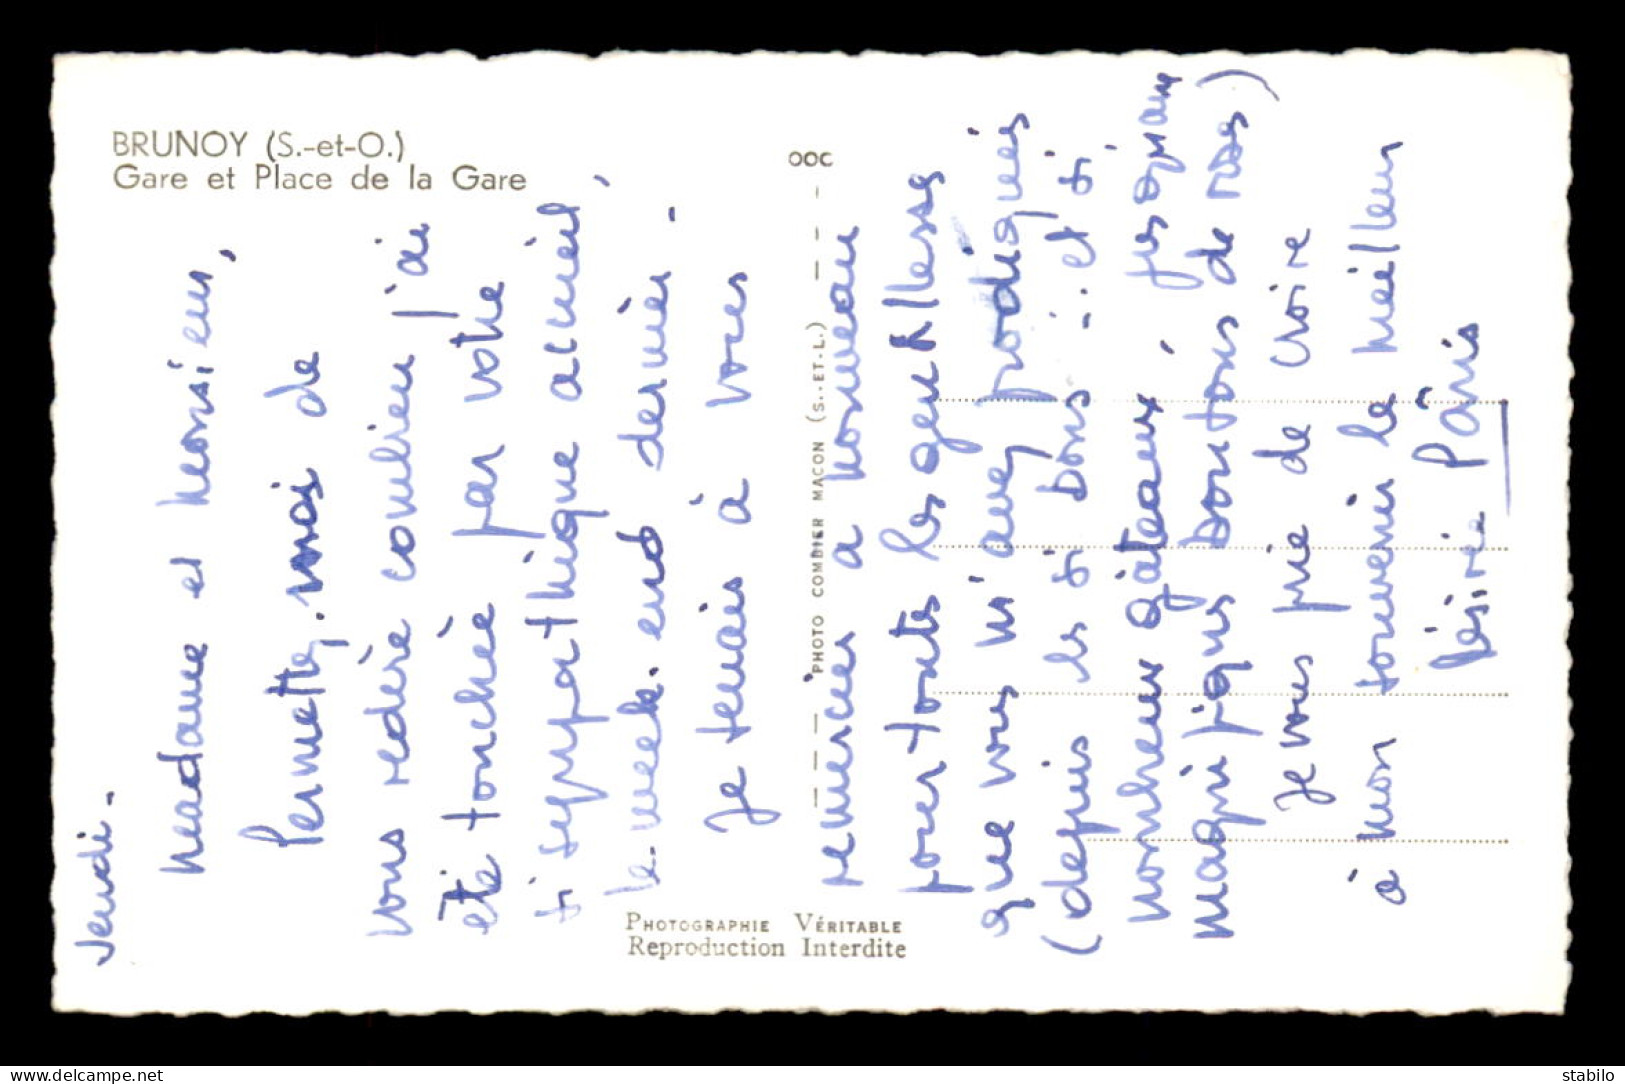 BRUNOY (S.-et-O.)
Gare et Place de la Gare
OOC
PHOTO COMBIER MACON (S.-ET-L.)
PHOTOGRAPHIE VÉRITABLE
Reproduction Interdite
Jeudi.
Madame et Monsieur,
Permettez-moi de
vous redire combien j'ai
été touchée par votre
si sympathique accueil,
le week-end dernier.
Je tenais à vous
remercier à nouveau
pour toutes les gentillesses
que vous m'avez prodiguées
(depuis les si bons .. et si
nombreux gâteaux, jusqu'aux
magnifiques boutons de roses)
Je vous prie de croire
à mon souvenir le meilleur
Désirée Pâris
delcampe.net
stabilo